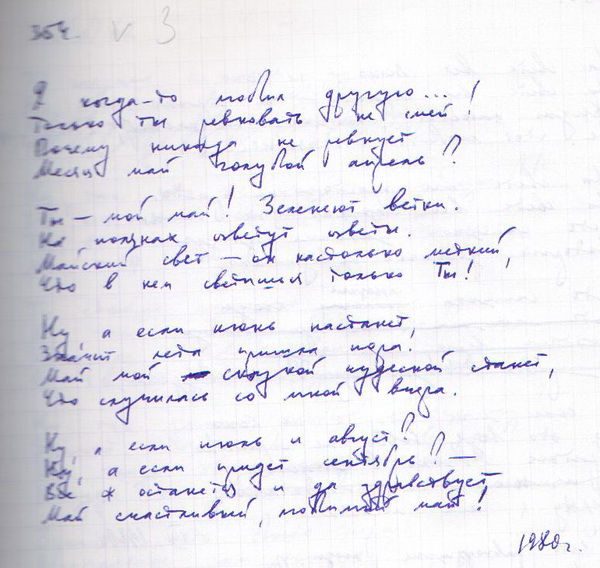 354. V 3
Я когда-то любил другую...!
Только ты ревновать не смей!
Почему никогда не ревнует
Месяц май голубой апрель?
Ты — мой май! Зеленеют ветки.
На полянах цветут цветы.
Майский свет — он настолько меткий,
Что в нем светишься только Ты!
Ну, а если июнь настанет,
Значит лета пришла пора.
Май мой сказкой чудесной станет,
Что случилась со мной вчера.
Ну, а если июль и август?
Ну, а если придет сентябрь? —
Все ж останется и да здравствует
Май счастливый, любимый май!
1980г.